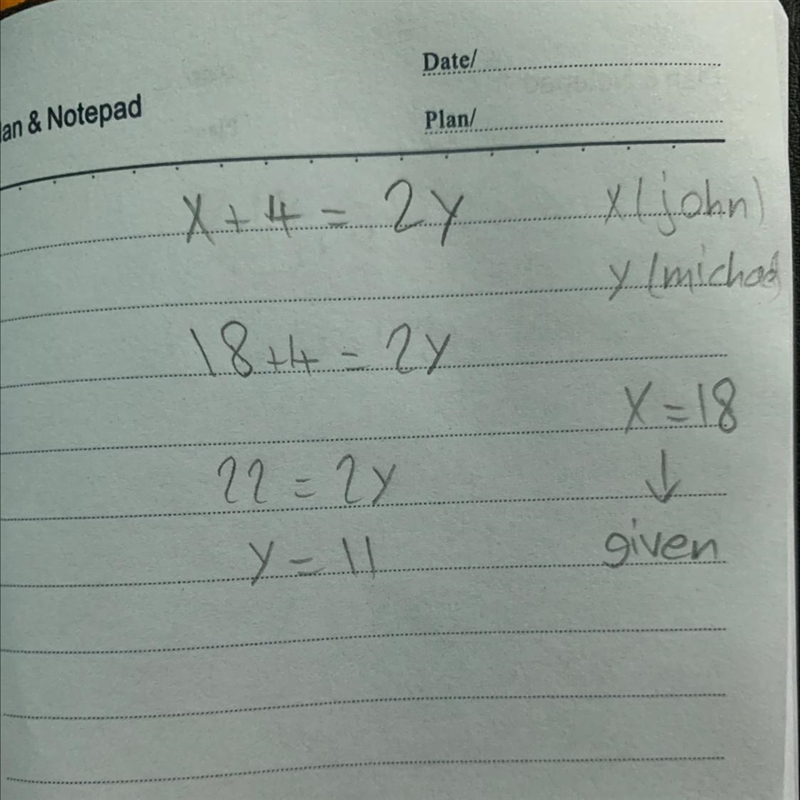 Date/
lan & Notepad
Plan/
x + 4 = 2y x (john)
y (michae
18 + 4 = 2y
x = 18
22 = 2y ↓
y = 11 given